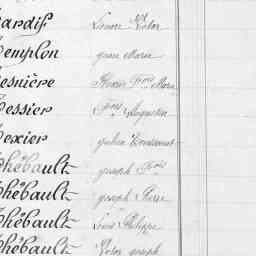 ardif Victor
emplon Marie
esnière Marie
essier Augustin
exier julien
hébault joseph Fçois
hébault joseph Pierre
hébault Louis Philippe
hébault Victor joseph